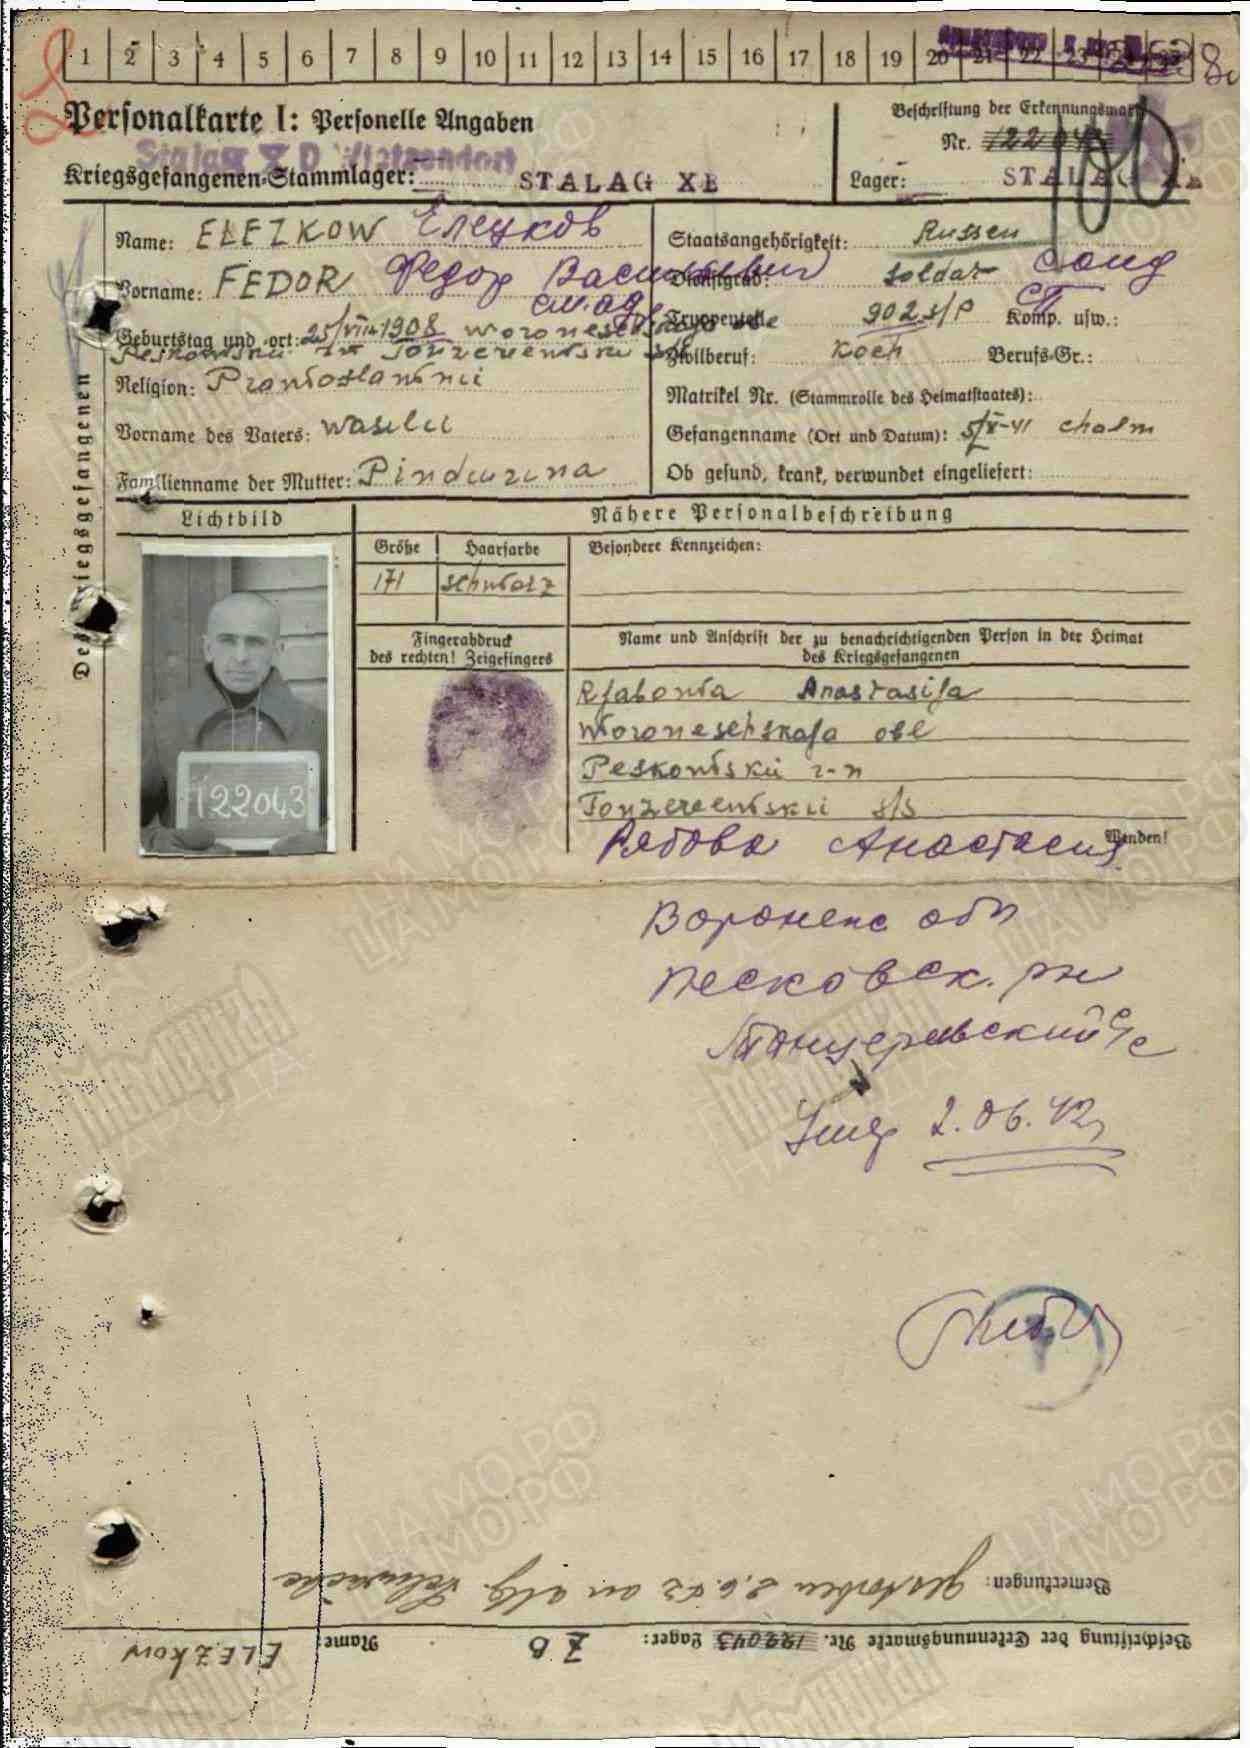 1 2 3 4 5 6 7 8 9 10 11 12 13 14 15 16 17 18 19 20 21 22 23
Personalkarte I: Personelle Angaben
Beschriftung der Erkennungsmarke
Nr. 122043
Stalag X D Wietzendorf
Kriegsgefangenen-Stammlager: STALAG XB
Lager: STALAG XB
Des Kriegsgefangenen
Name: ELEZKOW Елецков
Vorname: FEDOR Федор Васильевич
Geburtstag und -ort: 25/VIII 1908 Woroneschskaja obl
Religion: Prawoslawnii
Vorname des Vaters: Wasilii
Familienname der Mutter:
Staatsangehörigkeit: Russen
Dienstgrad: Soldat солд
Truppenteil: 902 s/P Komp. usw.:
Zivilberuf: Koch Berufs-Gr.:
Matrikel Nr. (Stammrolle des Heimatstaates):
Gefangenname (Ort und Datum): Cholm
Ob gesund, krank, verwundet eingeliefert:
Lichtbild
Nähere Personalbeschreibung
Größe Haarfarbe Besondere Kennzeichen:
171 schwarz
Fingerabdruck
des rechten! Zeigefingers
Name und Anschrift der zu benachrichtigenden Person in der Heimat
des Kriegsgefangenen
Rjabowa Anastasija
Woroneschskaja obl
Peskowskii r-n
s/s
122043
Рябова Анастасия
Wenden!
Воронеж обл
Песковск. рн
Танцеревский с/с
Умер 2.06.42
Bemerkungen: gestorben 2.6.42 an allg. Schwäche
Beschriftung der Erkennungsmarke Nr. 122043 Lager: X B Name: ELEZKOW